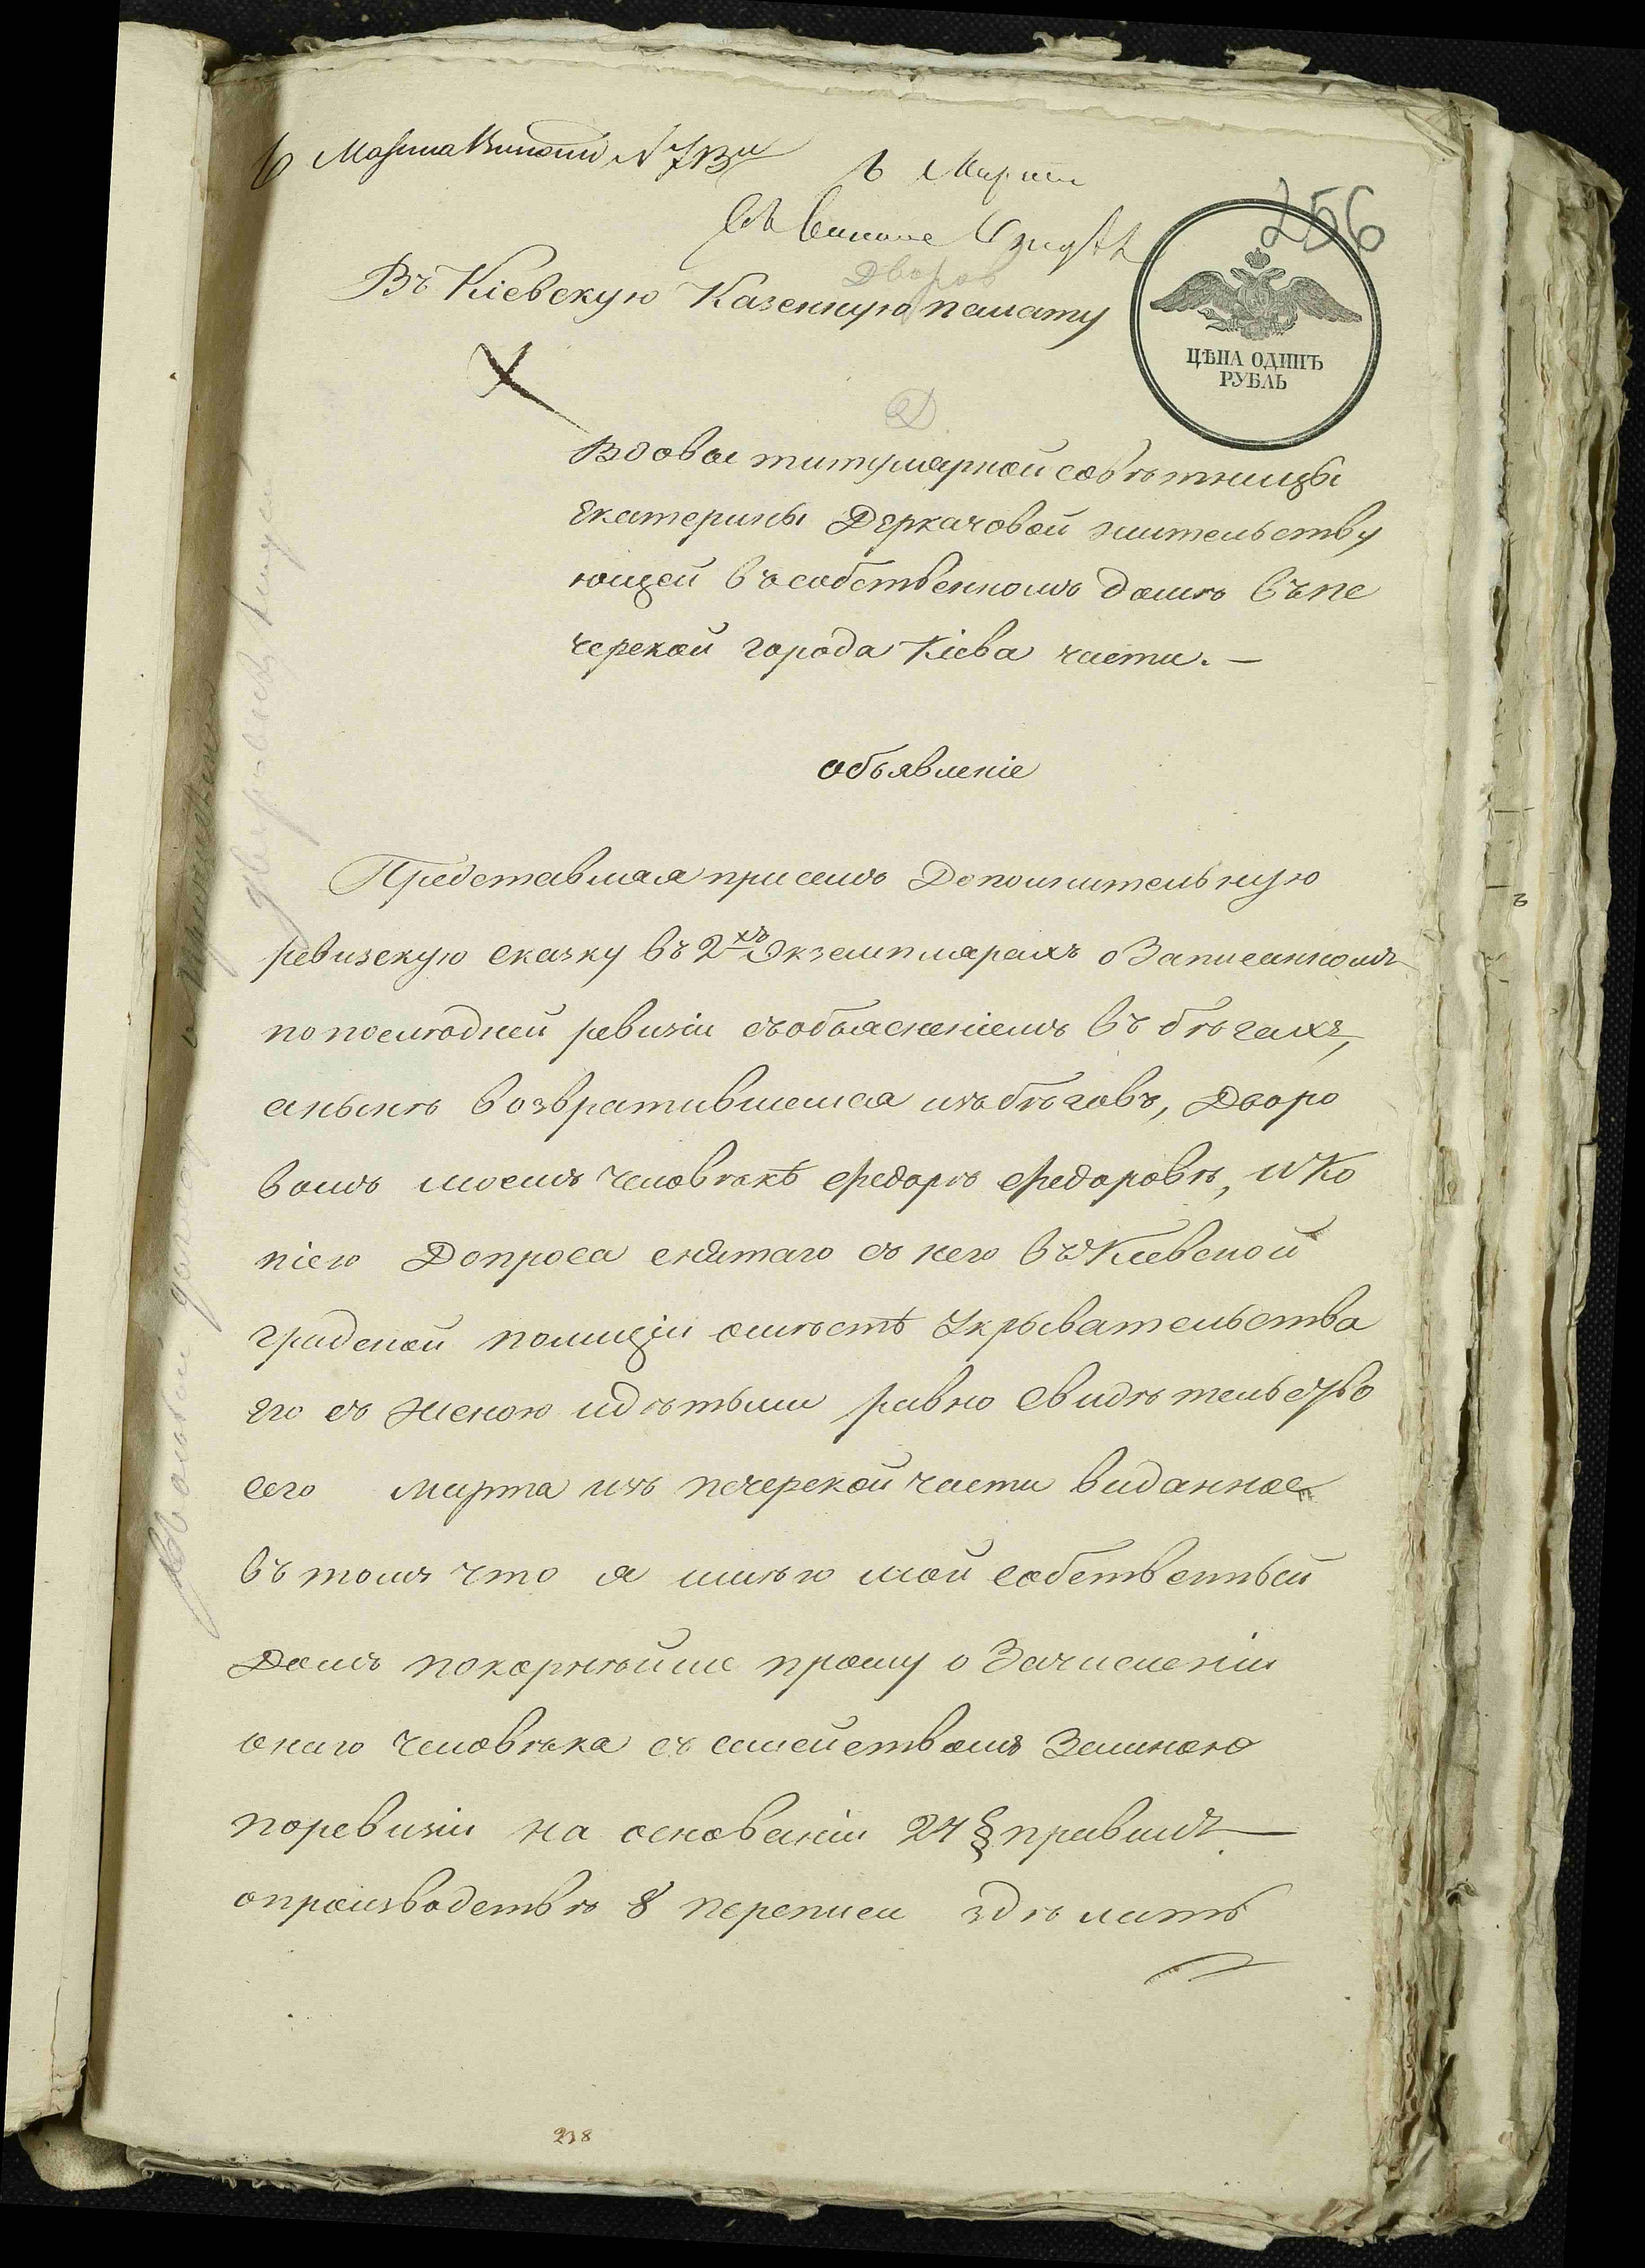 6 Марта
256
Въ Кіевскую Казенную палату
Двороῶ
ЦѢНА ОДИНЪ
РУБЛЬ
Вдовы титулярной совѣтницы
Екатерины Деркачовой жительству
ющей въ собственномъ домѣ въ пе
черской города Кіева части. —
объявленіе
Представляя присемъ Дополнительную
ревизскую сказку въ 2хъ Экземплярахъ о Записанномъ
по послѣдней ревизіи съ объясненіемъ въ бѣгахъ,
а нынѣ возвратившемся изъ бѣговъ, Дворо
вомъ моемъ человѣкѣ Федорѣ Федоровѣ, и Ко
піею Допроса снятаго съ него въ Кіевской
градской полиціи омѣстѣ Укрывательства
его съ женою и дѣтьми равно свидѣтельство
сего марта изъ печерской части виданное
въ томъ что я имѣю мой собственный
Домъ покорнѣйше прошу о Зачисленіи
онаго человѣка съ семействомъ Замною
поревизіи на основаніи 24 § правилъ
опроизводствѣ 8 переписи здѣлать
238